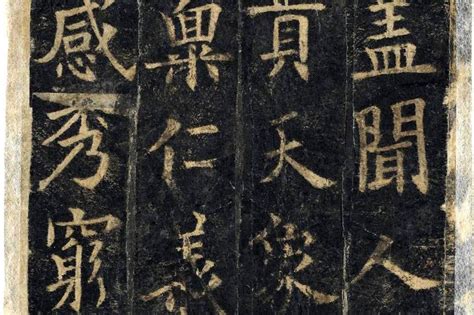 盖聞人
天象
稟仁義
感秀窮